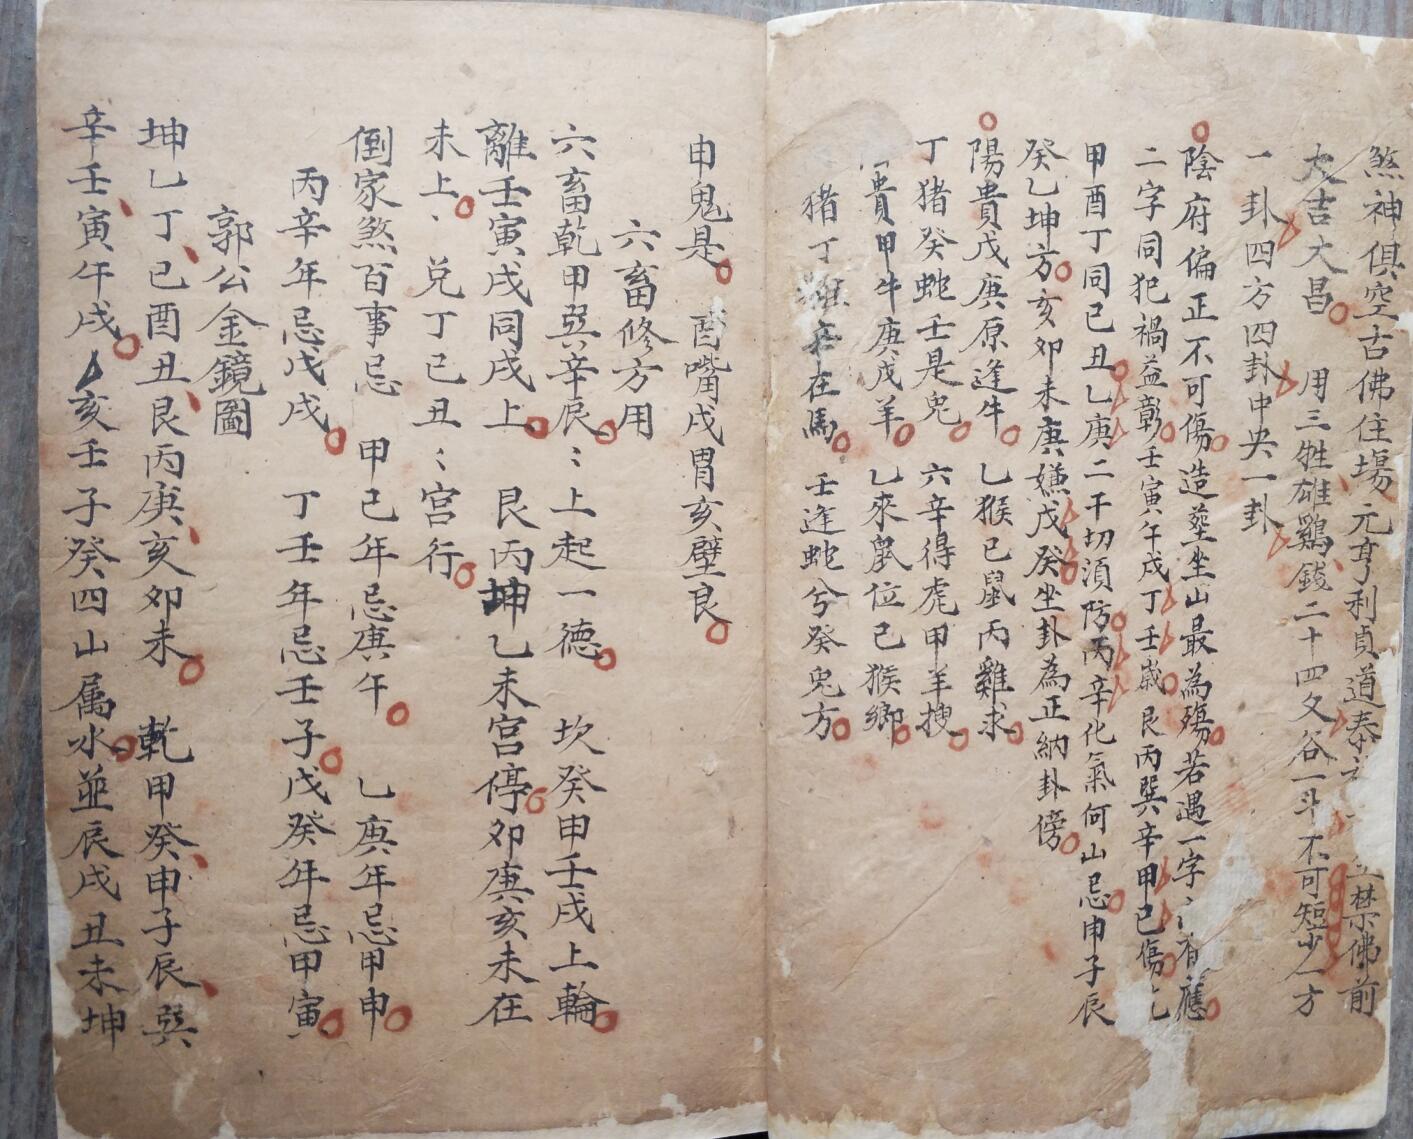 煞神俱空古佛住場元亨利貞道泰禁佛前
大吉大昌 用三牲雄鷄錢二十四文谷一斗不可短少一方
一卦四方四卦中央一卦
陰府偏正不可傷造塟坐山最為殤若遇一字〻有應
二字同犯禍益彰壬寅午戌丁壬歲艮丙巽辛甲已傷
甲酉丁同已丑乙庚二干切須防丙辛化氣何山忌申子辰
癸乙坤方亥卯未庚嫌戊癸坐卦為正納卦傍
陽貴戊庚原逢牛 乙猴已鼠丙雞求
丁猪癸蛇壬是兔 六辛得虎甲羊搜
貴甲牛庚戊羊 乙來鼠位己猴鄉
猪丁雞辛在馬 壬逢蛇兮癸兔方
申鬼是 酉嘴戌胃亥壁良
六畜修方用
六畜乾甲巽辛辰〻上起一德 坎癸申壬戌上輪
離壬寅戌同戌上 艮丙坤乙未宮停卯庚亥未在
未上、兌丁已丑〻宮行
倒家煞百事忌 甲己年忌庚午 乙庚年忌甲申
丙辛年忌戊戌 丁壬年忌壬子戊癸年忌甲寅
郭公金鏡圖
坤乙丁巳酉丑艮丙庚亥卯未 乾甲癸申子辰巽
辛壬寅午戌亥壬子癸四山属水並辰戌丑未坤